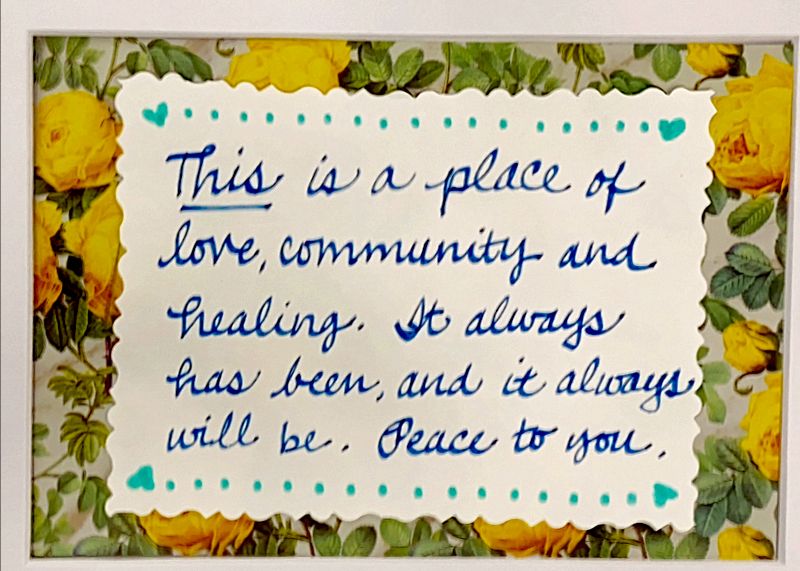 This is a place of
love, community and
healing. It always
has been, and it always
will be. Peace to you.